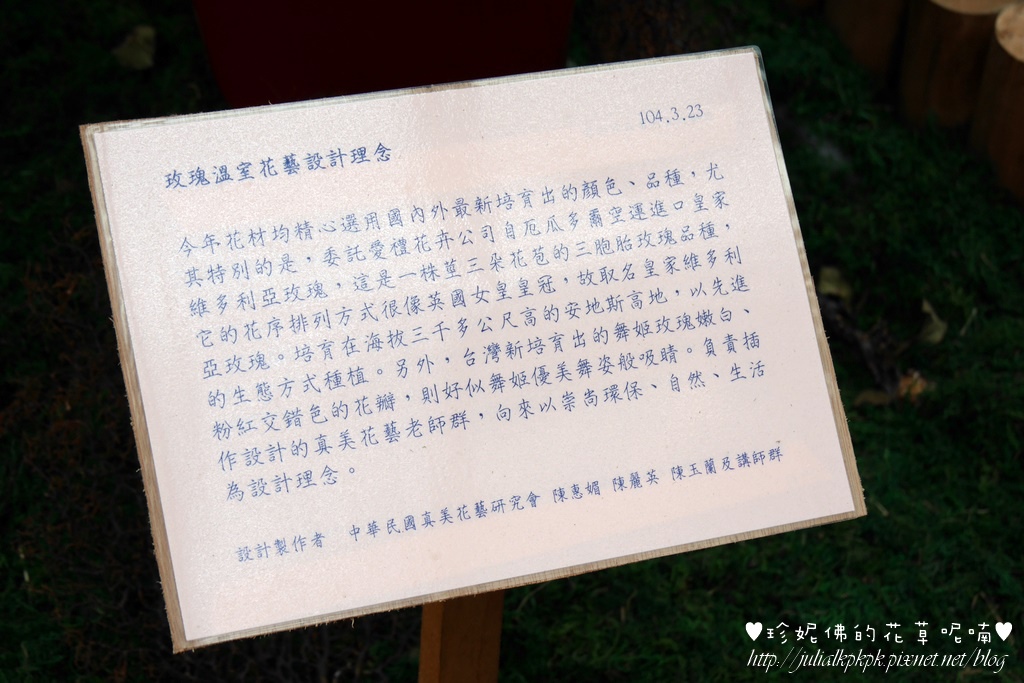 104.3.23
玫瑰溫室花藝設計理念
今年花材均精心選用國內外最新培育出的顏色、品種，尤
其特別的是，委託愛禮花卉公司自厄瓜多爾空運進口皇家
維多利亞玫瑰，這是一株單三朵花苞的三胞胎玫瑰品種，
它的花序排列方式很像英國女皇皇冠，故取名皇家維多利
亞玫瑰。培育在海拔三千多公尺高的安地斯高地，以先進
的生態方式種植。另外，台灣新培育出的舞姬玫瑰嫩白、
粉紅交錯色的花瓣，則好似舞姬優美舞姿般吸睛。負責插
作設計的真美花藝老師群，向來以崇尚環保、自然、生活
為設計理念。
設計製作者 中華民國真美花藝研究會 陳惠媚 陳麗英 陳玉蘭及講師群
♥珍妮佛的花草呢喃♥
http://julialkpkpk.pixnet.net/blog